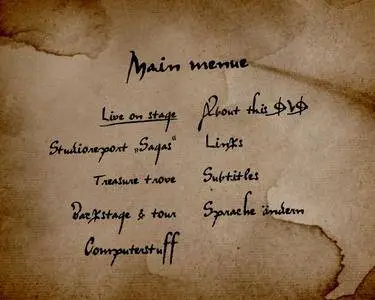 Main menue
Live on stage
Studioreport „Sagas“
Treasure trove
Backstage & tour
Computerstuff
About this DVD
Links
Subtitles
Sprache ändern